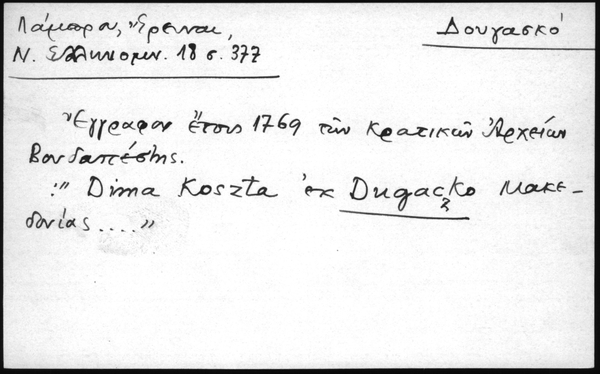 Λάμπρου, Ἔρευναι,
Δουγασκό
Ν. Ἑλληνομν. 18 σ. 377
Ἔγγραφον ἔτους 1769 τῶν Κρατικῶν Ἀρχείων
Βουδαπέστης.
:" Dima Koszta ἐκ Dugaçko Μακε-
δονίας ....."